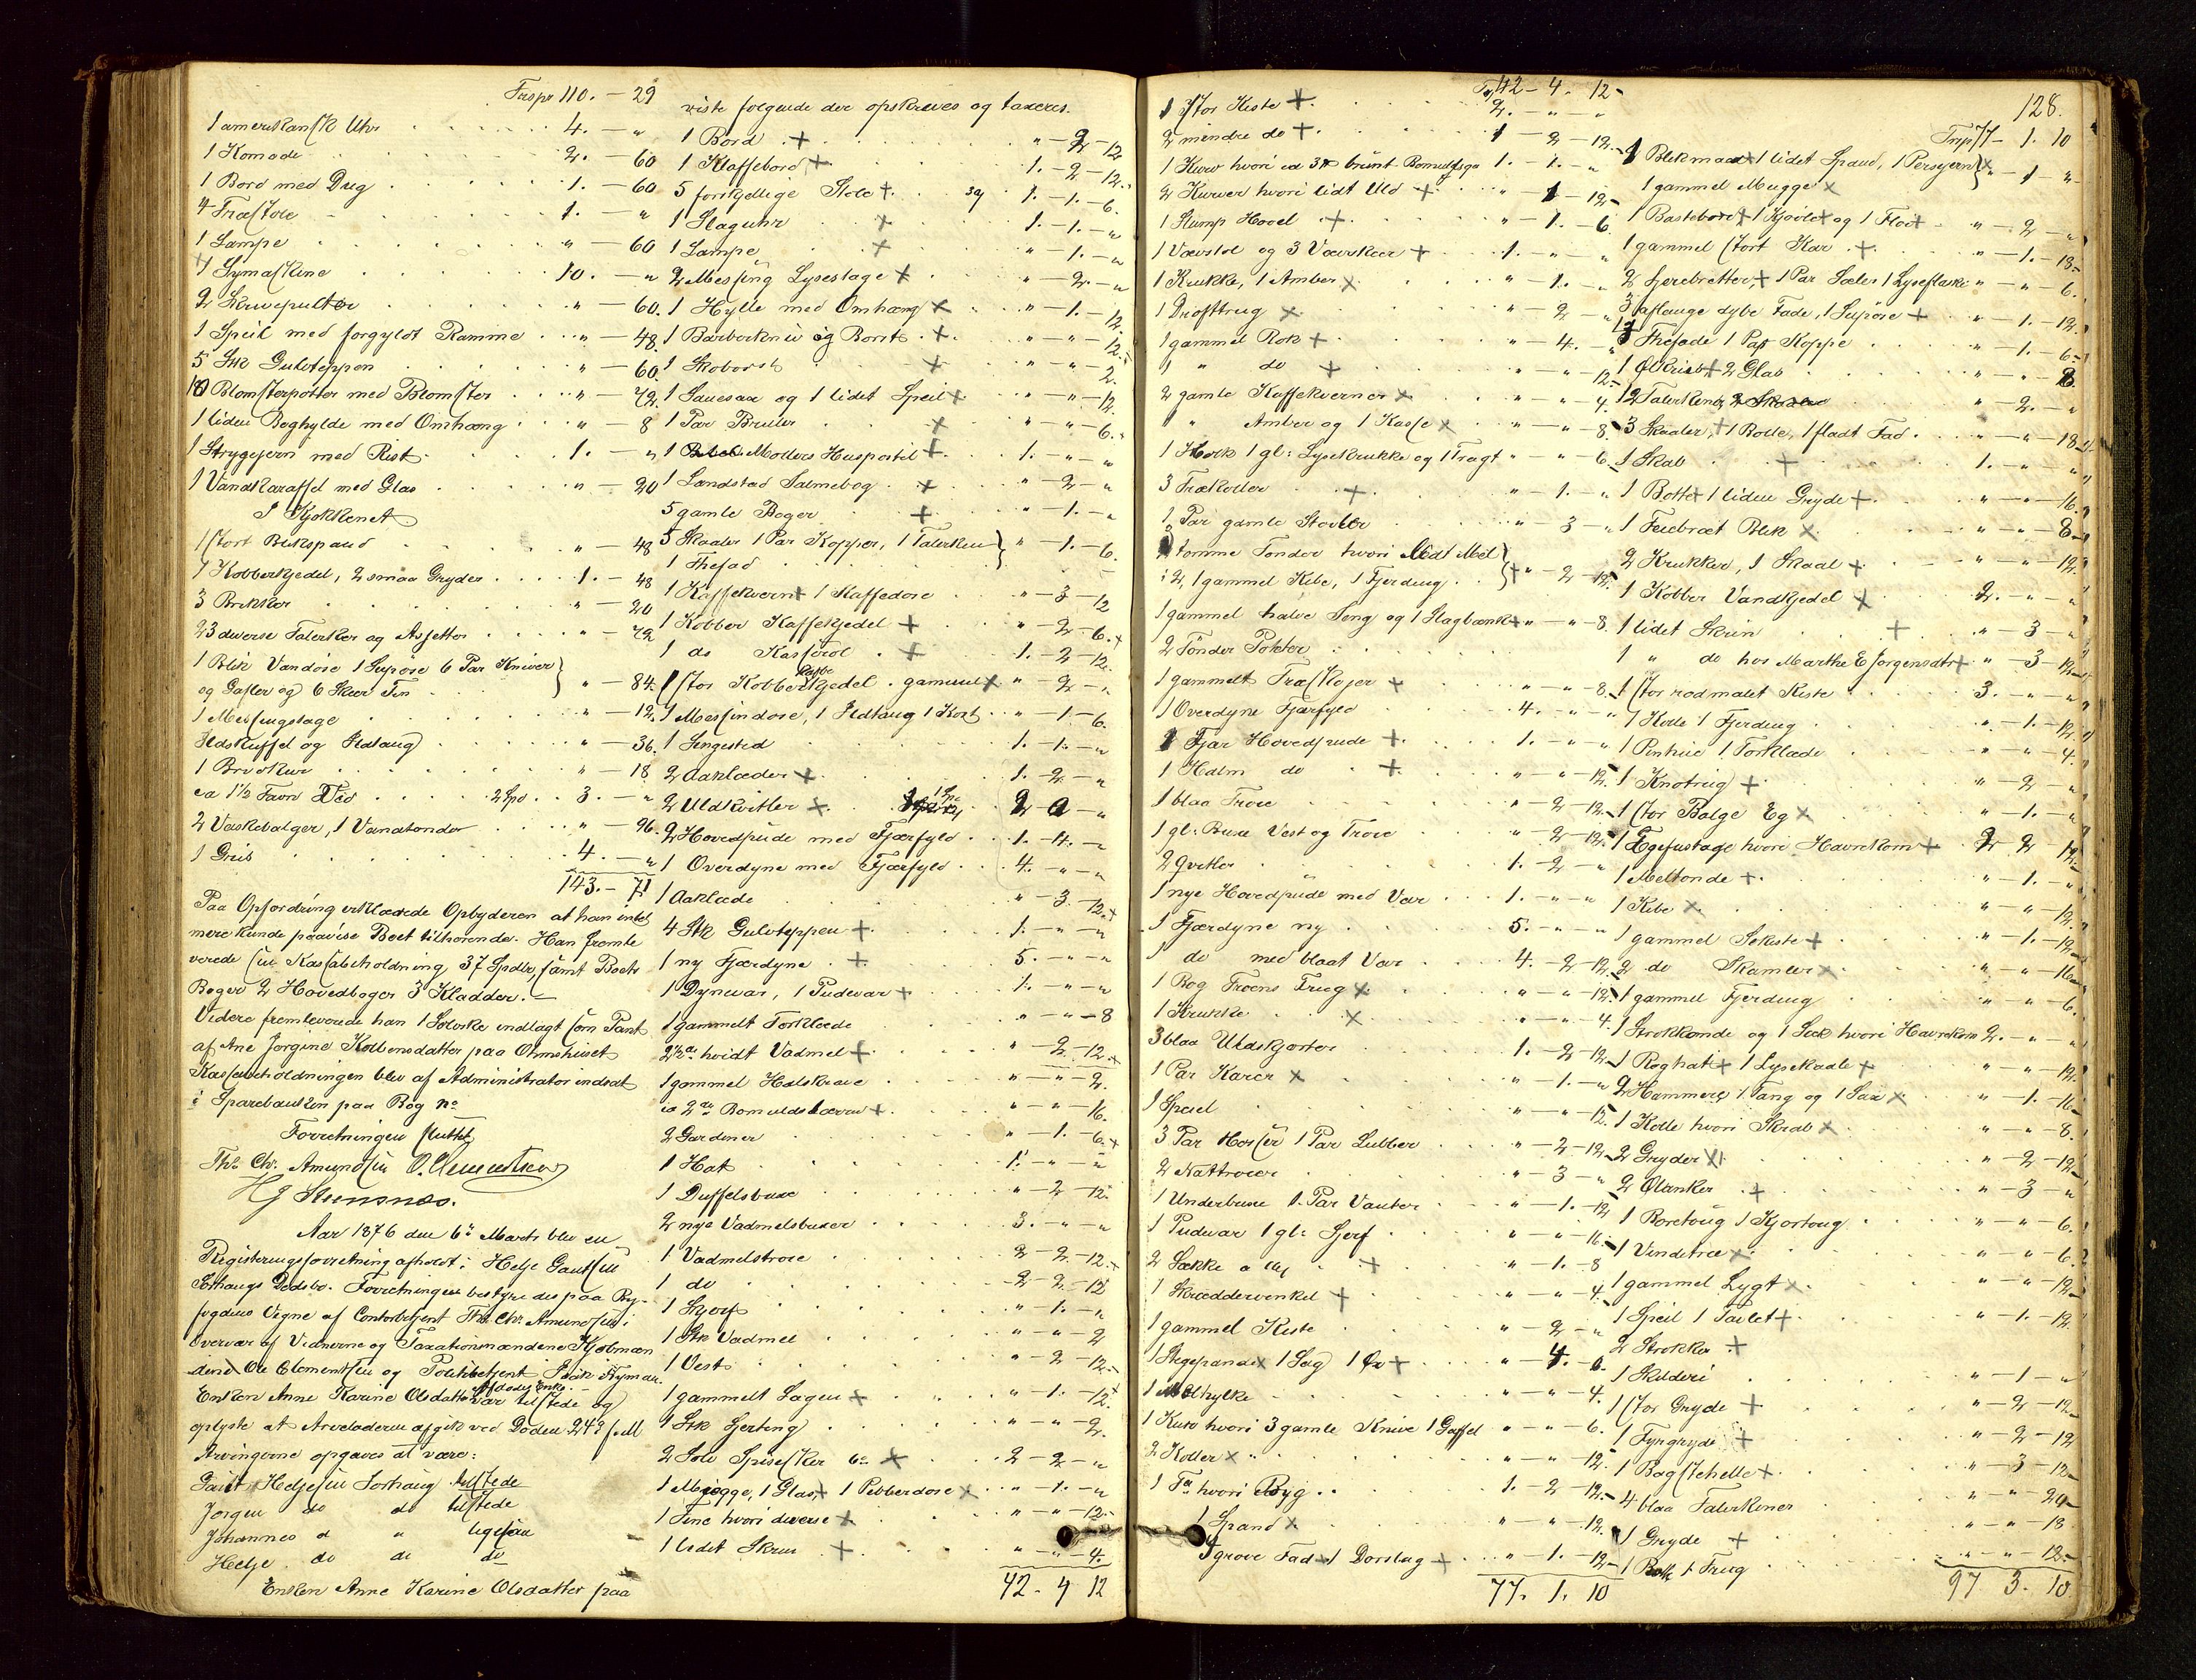 Trsp 110. - 29
1 amerikansk Uhr 4. - "
1 Komode 2. - 60
1 Bord med Dug 1. - 60
4 Træstole 1. - "
1 Lampe " - 60
1 Symaskine 10. - "
2 Skrivepulter " - 60.
1 Speil med forgyldt Ramme " - 48.
5 Stk Gulvteppen " - 60.
10 Blomsterpotter med Blomster " - 72.
1 liden Boghylde med Omhæng " - 8
1 Strygejern med Rist 1. - "
1 Vandkaraffel med Glas " - 20
I Kjøkkenet
1 stort Blikspand " - 48
1 Kobberkjedel, 2 smaa Gryder 1. - 48
3 Brikker " - 20
23 diverse Talerker og Asjetter " - 72
1 Blik Vandøse 1 Supøse 6 Par Kniver
og Gafler og 6 Skeer Tin " - 84.
1 Messingstage " - 12.
Ildskuffel og Ildtang " - 36.
1 " - 18
ca 1½ Favn Ved 2 Spd 3. - "
2 Vaskebalger, 1 Vandtønder " - 96.
1 Gris 4. - "
143. - 71
Paa Opfordring erklærede Opbyderen at han intet
mere kunde paavise Boet tilhørende. Han fremle
verede sin Kassabeholdning 37 Spdlr, samt Boets
Bøger 2 Hovedbøger 3 Kladder. -
Videre fremleverede han 1 Sølvske indlagt som Pant
af Ane Jørgine Kolbensdatter paa Ohmshuset
Kassabeholdningen blev af Administrator indsat
i Sparebanken paa Bog No
Forretningen sluttet
Ths. Chr. Amundsen O. Clementsen
H J Steensnæs.
Aar 1876 den 6te Marts blev en
Registreringsforretning afholdt i Helje Gautsen
Sørhaugs Dødsbo. Forretningen bestyredes paa By-
fogdens Vegne af Contorbetjent Ths. Chr. Amundsen i
Overvær af Vidnerne og Taxationsmændene Kjøbmæn
dene Ole Clementsen og Politibetjent Isak Nyman.
Afdødes Enke
Enken Anne Karine Olsdatter var tilstede og
oplyste at Arveladeren afgik ved Døden 24de f. M
Arvingerne opgaves at være:
Gaut Heljesen Sørhaug tilstede
Jørgen do do tilstede
Johannes d " ligesaa
Helje do do do
Enken Anne Karine Olsdatter paa
viste følgende der opskreves og taxeres.
1 Bord + " - 2 - 12
1 Klaffebord + 1. - 2 - 12.
5 forskjellige Stole + 1. - 1. - 6.
1 Slaguhr + 1. - 1. - "
1 Lampe + " - 1. - "
2 Messing Lysestage + " - 2. - "
1 Hylle med Omhæng + " - 1. - 12
1 Barberkniv og Borst + " - " - 12.
1 Skobørst + " - " - 2.
1 Sauesax og 1 lidet Speil + " - " - 12.
1 Par Briller + " - " - 6.
1 Møllers Huspostil + 1. - " - "
1 Landstad Salmebog + " - 2 - "
5 gamle Bøger + " - 1. - "
5 Skaaler 1 Par Kopper, 1 Talerken
1 Thefad " - 1. - 6.
1 Kaffekvern + 1 Kaffedose " - 3 - 12
1 Kobber Kaffekjedel + " - 2 - 6.
1 do Kasserol + 1. - 2 - 12.
1 stor Kobberkjedel gammel + " - 2 - "
1 Messindose, 1 Ildtang 1 Kost " - 1. - 6.
1 Sengested 1. - 1. - "
2 Aaklæder + 1. - 2. - "
2 Uldkvitler +
2 Hovedpude med Fjærfyld 1. - 4. - "
1 Overdyne med Fjærfyld 4. - " - "
1 Aaklæde " - 3. - 12.
4 Stk Gulvteppen + 1. - " - "
1 ny Fjærdyne + 5. - " - "
1 Dynevar, 1 Pudevar + 1. - " - "
1 gammelt Torklæde " - " - 8
hvidt Vadmel + " - 2 - 12.
1 gammel Halskrave " - " - 2.
ca 2 al Bomuldslærred + " - " - 16.
2 Gardiner " - 1. - 6.
1 Hat 1. - " - "
1 Duffelsbuxe " - 2 - 12.
2 nye Vadmelsbuxer 3. - " - "
1 Vadmelstrøie 2 - 2 - 12.
1 do 2 - 2 - 12
1 Skjorte " - 1. - "
1 Stk Vadmel " - " - 2
1 Vest " - 2 - 12.
1 gammelt Lagen + " - 1. - 12.
1 Stk Sjerting " - " - 2.
2 Sølv Spiseskeer + 2 - 2 - "
1 Mugge, 1 Glas, + 1 Pebberdose + " - 1. - "
1 Tine hvori diverse + " - " - 12.
1 lidet Skrin + " - " - 4.
42 - 4 12
Trsp 42 - 4 - 12
1 stor Kiste + 2. - " - "
2 mindre do + 1 - 2 - 12.
1 Kurv hvori ca 3 brunt Bomuldsgarn 1. - 1. - "
2 Kurver hvori lidt Uld + " - 1 - 12
1 Stump Hovel + " - 1. - 6.
1 Vævstol og 3 Vævskeer + 1. - " - "
1 Krukke, 1 Amber + " - 1. - "
1 Drøfttrug + " - 2 - "
1 gammel Rok + " - 4. - "
1 " do + " - " - 12.
2 gamle Kaffekverner + " - " - 4.
" Amber og 1 Kasse + " - " - 8.
1 Hork 1 gl. Lysekrukke og 1 Tragt " - " - 6.
3 Trækoller + " - 1. - "
1 Par gamle Støvler " - 3 - "
tomme Tønder hvori lidt Mel
i 2, 1 gammel Kibe, 1 Fjerding + " - 2 - 12.
1 gammel halve Seng og 1 Slagbænk + " - " - 8.
2 Tønder Poteter
1 gammelt Træskjer + " - " - 8.
1 Overdyne Fjærfyld 4. - " - "
1 Fjær Hovedpude + 1. - " - "
1 Halm do + " - " - 12.
1 blaa Trøie " - 2 - 12.
1 gl. Buxe Vest og Trøie " - 2 - 12.
2 Qvitler 1. - 2 - "
1 nye Hovedpude med Var 1. - " - "
1 Fjærdyne ny 5. - " - "
1 do med blaat Var 4. - 2 - 12.
1 Bog Troens Frug + " - " - 12.
1 Krukke + " - " - 4.
3 blaa Uldskjorter 1. - 2 - 12.
1 Par Karer + " - 1. - "
1 Speil " - " - 12.
3 Par Hoser 1 Par Lubber " - 2 - 12.
2 Nattrøier " - 3 - "
1 Underbuxe 1 Par Vanter " - 1. - 12.
1 Pudevar 1 gl. Sjerf " - " - 16.
2 Sække + " - 1. - 8
1 Skræddervinkel + " - " - 4.
1 gammel Kiste " - 2 - "
1 Stegepande + 1 Sag 1 Øx + " - 4. - 6.
1 Mælhylke " - " - 4.
1 Kurv hvori 3 gamle Knive 1 Gaffel " - " - 6.
2 Koller + " - " - 12.
1 Tø hvori Byg 1. - 2 - 12.
1 Spand + " - " - 12.
grove Fad + 1 Dorslag + " - 1. - 12.
77. 1. 10
128.
Trsp 77 - 1. 10
1 Blikmaal + 1 lidet Spand, 1 Persejern + " - 1 - "
1 gammel Mugge +
1 Bastebord + 1 Kjøvle + og 1 Flo + " - 2 - "
1 gammel stort Kar + " - 1. - 18.
2 Sjerebretter, + 1 Par Sæler 1 Lyseflaske " - " - 6.
3 aflange dybe Fade, 1 Supøse + " - 1. - 12.
Thefade 1 Par Koppe " - 1. - 6.
1 Ølkrus + 2 Glas " - " - 8.
12 Talerkener " - 2. - "
3 Skaaler, + 1 Bolle, 1 fladt Fad " - " - 18.
1 Skab + 1. - " - "
1 Bøtte + 1 liden Gryde + " - " - 16.
1 Feiebræt Blik + " - " - 8
2 Krukker, 1 Skaal + " - " - 12.
1 Kobber Vandkjedel + 2. - " - "
1 lidet Skrin + " - 3 - "
1 " do hos Marthe E Jørgensdatr + " - 3 - 12
1 stor rødmalet Kiste 3. - " - "
1 Kolle 1 Fjerding " - 1. - 12.
1 Penhue 1 Torklæde " - " - 4.
1 Knotrug + " - 2 - "
1 stor Balge Eg + " - 1. - "
1 Egefustage hvori Havrekorn + 2 2 - 12
1 Meltønde + " - 1. - "
1 Kibe + " - " - 12.
1 gammel Sekiste + " - 1. - 12
2 do Skamler + " - " - 16
1 gammel Fjerding " - " - 6.
1 Strokkonde og 1 Sæk hvori Havrekorn 2. - " - "
1 Røghat + 1 Lysekaale + " - " - 12.
2 Hammere, 1 Tang og 1 Sax + " - 1. - 16
1 Kolle hvori Skrab + " - " - 8.
2 Gryder + " - 2 - 12
2 Ølanker + " - 3 - "
1 Boretøug 1 Kjortoug " - " - 6.
1 Vindetræ + " - " - 6.
1 gammel Lygt + " - " - 12
1 Speil 1 Tavlet + " - 1. - 12.
2 Strokker +
1 Skilderi " - 1 - "
1 stor Gryde + " - 2 - 12
1 Fyrgryde + " - 2 - 12
1 Bagstehelle + " - 3 - 12
4 blaa Talerkener " - " - 20
1 Gryde + " - " - 18
1 1 Trug " - " - 12
97 3. 10